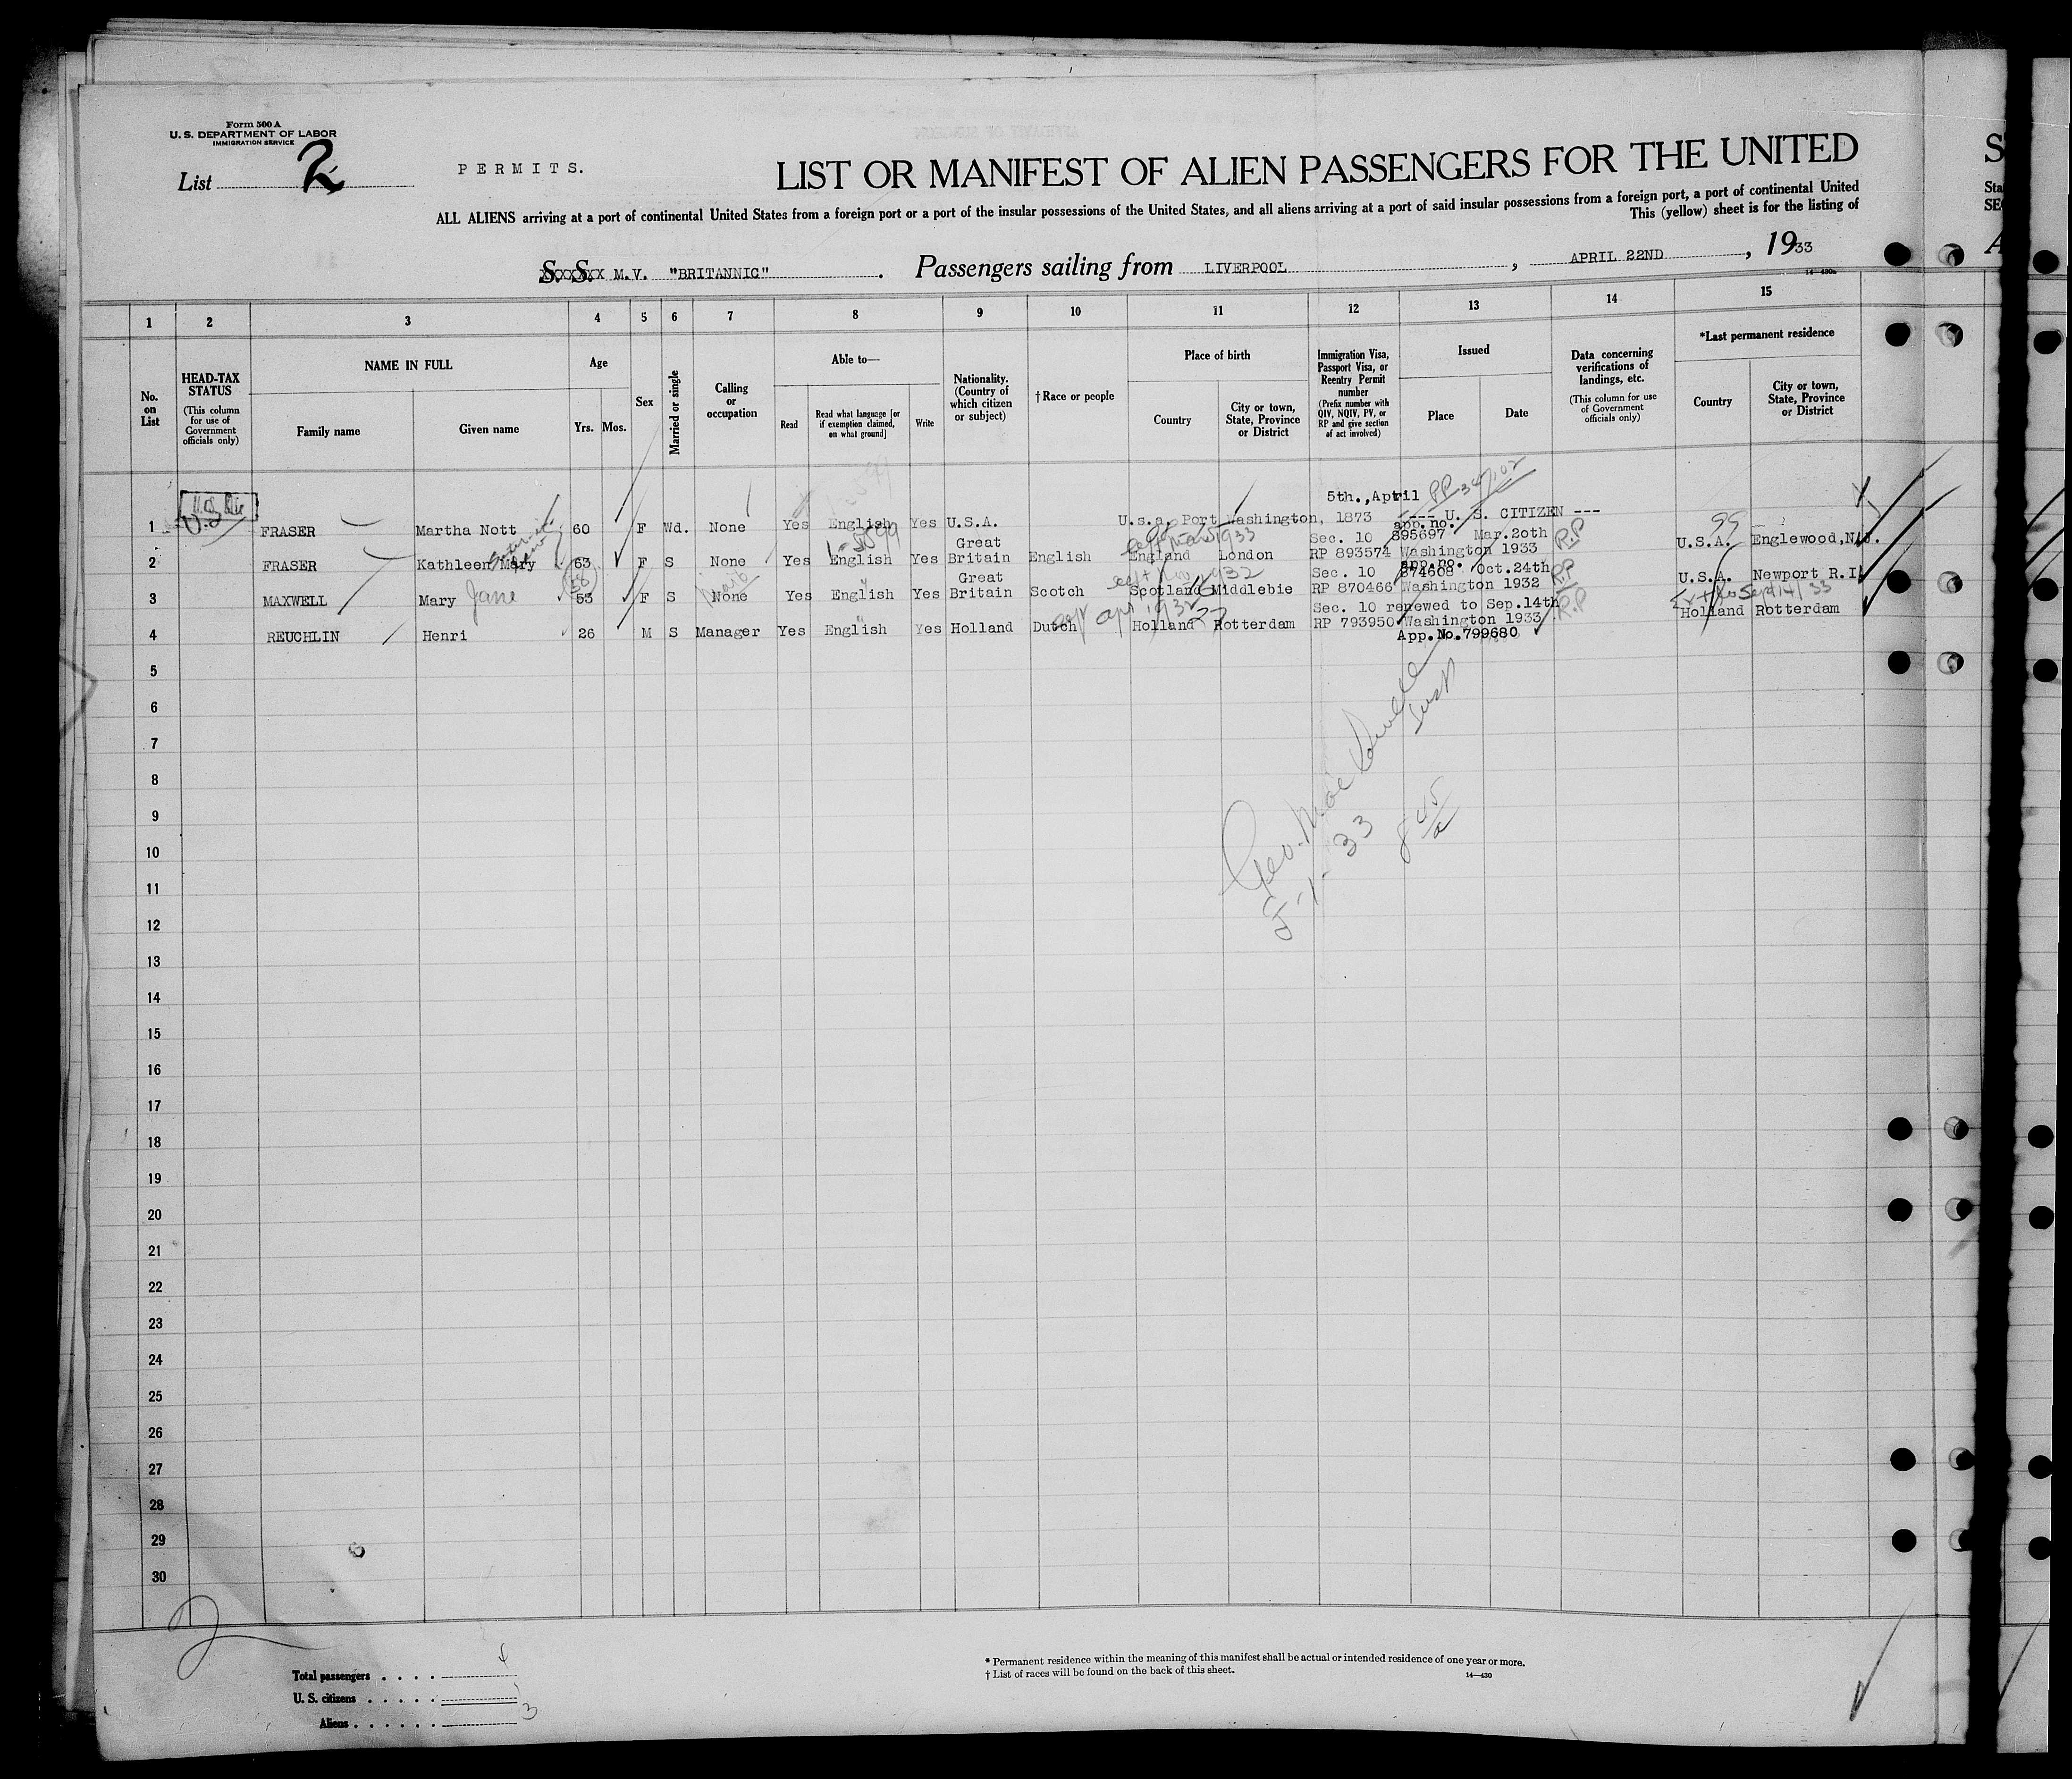 Form 500 A
U. S. DEPARTMENT OF LABOR
IMMIGRATION SERVICE
List 2
PERMITS.
LIST OR MANIFEST OF ALIEN PASSENGERS FOR THE UNITED
ALL ALIENS arriving at a port of continental United States from a foreign port or a port of the insular possessions of the United States, and all aliens arriving at a port of said insular possessions from a foreign port, a port of continental United
This (yellow) sheet is for the listing of
S. S. M.V. "BRITANNIC" . Passengers sailing from LIVERPOOL , APRIL 22ND , 1933
14—430a
1 2 3 4 5 6 7 8 9 10 11 12 13 14 15
No. on List
HEAD-TAX STATUS
(This column for use of Government officials only)
NAME IN FULL
Family name
Given name
Age
Yrs.
Mos.
Sex
Married or single
Calling or occupation
Able to—
Read
Read what language [or if exemption claimed, on what ground]
Write
Nationality. (Country of which citizen or subject)
†Race or people
Place of birth
Country
City or town, State, Province or District
Immigration Visa, Passport Visa, or Reentry Permit number
(Prefix number with QIV, NQIV, PV, or RP and give section of act involved)
Issued
Place
Date
Data concerning verifications of landings, etc.
(This column for use of Government officials only)
*Last permanent residence
Country
City or town, State, Province or District
5th.,April
1 U.S FRASER Martha Nott 60 F Wd. None Yes English Yes U.S.A. U.s.a. Port Washington, 1873 --- U. S. CITIZEN ---
Great Sec. 10 app.no. 895697 Mar.20th U.S.A. Englewood,N.J.
2 FRASER Kathleen Mary 63 F S None Yes English Yes Britain English England London RP 893574 Washington 1933 R.P
Great Sec. 10 app.no. 874608 Oct.24th U.S.A. Newport R.I.
3 MAXWELL Mary Jane 53 F S None Yes English Yes Britain Scotch Scotland Middlebie RP 870466 Washington 1932 R.P
Sec. 10 renewed to Sep.14th Holland Rotterdam
4 REUCHLIN Henri 26 M S Manager Yes English Yes Holland Dutch Holland Rotterdam RP 793950 Washington 1933 R.P
App.No.799680
5
6
7
8
9
10
11
12
13
14
15
16
17
18
19
20
21
22
23
24
25
26
27
28
29
30
5-1-33
2
Total passengers . . . . 4
U. S. citizens . . . . . 1
Aliens . . . . . . 3
* Permanent residence within the meaning of this manifest shall be actual or intended residence of one year or more.
† List of races will be found on the back of this sheet.
14—430